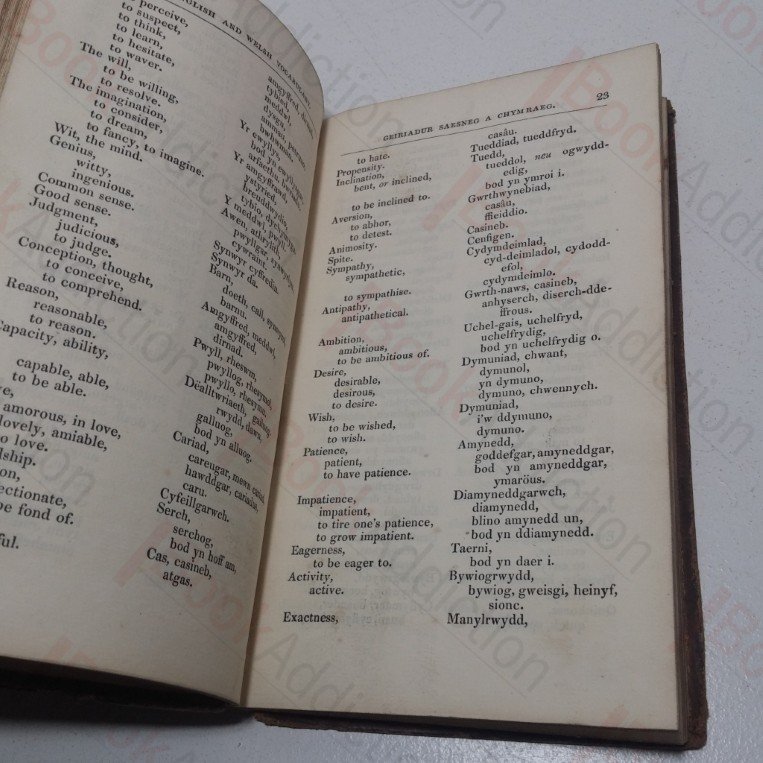 ENGLISH AND WELSH VOCABULARY.
to perceive,
to suspect,
to think,
to learn,
to hesitate,
to waver.
The will,
to be willing,
to resolve.
The imagination,
to consider,
to dream,
to fancy, to imagine.
Wit, the mind.
Genius,
witty,
ingenious.
Common sense.
Good sense.
Judgment,
judicious,
to judge.
Conception, thought,
to conceive,
to comprehend.
Reason,
reasonable,
to reason.
Capacity, ability,
capable, able,
to be able.
amorous, in love,
lovely, amiable,
to love.
be fond of.
amgyffred, dirnad,
tybied,
meddwl,
dysgu,
ammau, petruso,
bwhwman.
Yr ewyllys,
bod yn
arfaethu,
Yr amgyffrand,
ystyried,
breuddwydio,
tybio, dychymygu.
Y meddwl, pwyll.
Awen, athrylith,
pwyllgar,
cywraint.
Synwyr cyffedin.
Synwyr da.
Barn,
doeth, call, synwyrol,
barnu.
Amgyffred, meddwl,
amgyffred,
dirnad.
Pwyll, rheswm,
pwyllog, rhesymol,
pwyllo, rhesymu.
Dealltwriaeth, gallu,
rwydd, dawn,
galluog,
bod yn alluog.
Cariad,
careugar, mewn cariad,
hawddgar, cariadus,
caru.
Cyfeillgarwch.
Serch,
serchog,
bod yn hoff am,
Cas, casineb,
atgas.
GEIRIADUR SAESNEG A CHYMRAEG. 23
to hate.
Propensity.
Inclination,
bent, or inclined,
to be inclined to.
Aversion,
to abhor,
to detest.
Animosity.
Spite.
Sympathy,
sympathetic,
to sympathise.
Antipathy,
antipathetical.
Ambition,
ambitious,
to be ambitious of.
Desire,
desirable,
desirous,
to desire.
Wish,
to be wished,
to wish.
Patience,
patient,
to have patience.
Impatience,
impatient,
to tire one's patience,
to grow impatient.
Eagerness,
to be eager to.
Activity,
active.
Exactness,
casâu.
Tueddiad, tueddfryd.
Tuedd,
tueddol, neu ogwydd-
edig,
bod yn ymroi i.
Gwrthwynebiad,
casâu,
ffieiddio.
Casineb.
Cenfigen.
Cydymdeimlad,
cyd-deimladol, cydodd-
efol,
cydymdeimlo.
Gwrth-naws, casineb,
anhyserch, diserch-dde-
ffrous.
Uchel-gais, uchelfryd,
uchelfrydig,
bod yn uchelfrydig o.
Dymuniad, chwant,
dymunol,
yn dymuno,
dymuno, chwennych.
Dymuniad,
i'w ddymuno,
dymuno.
Amynedd,
goddefgar, amyneddgar,
bod yn amyneddgar,
ymaröus.
Diamyneddgarwch,
diamynedd,
blino amynedd un,
bod yn ddiamynedd.
Taerni,
bod yn daer i.
Bywiogrwydd,
bywiog, gweisgi, heinyf,
sionc.
Manylrwydd,
Book Addiction